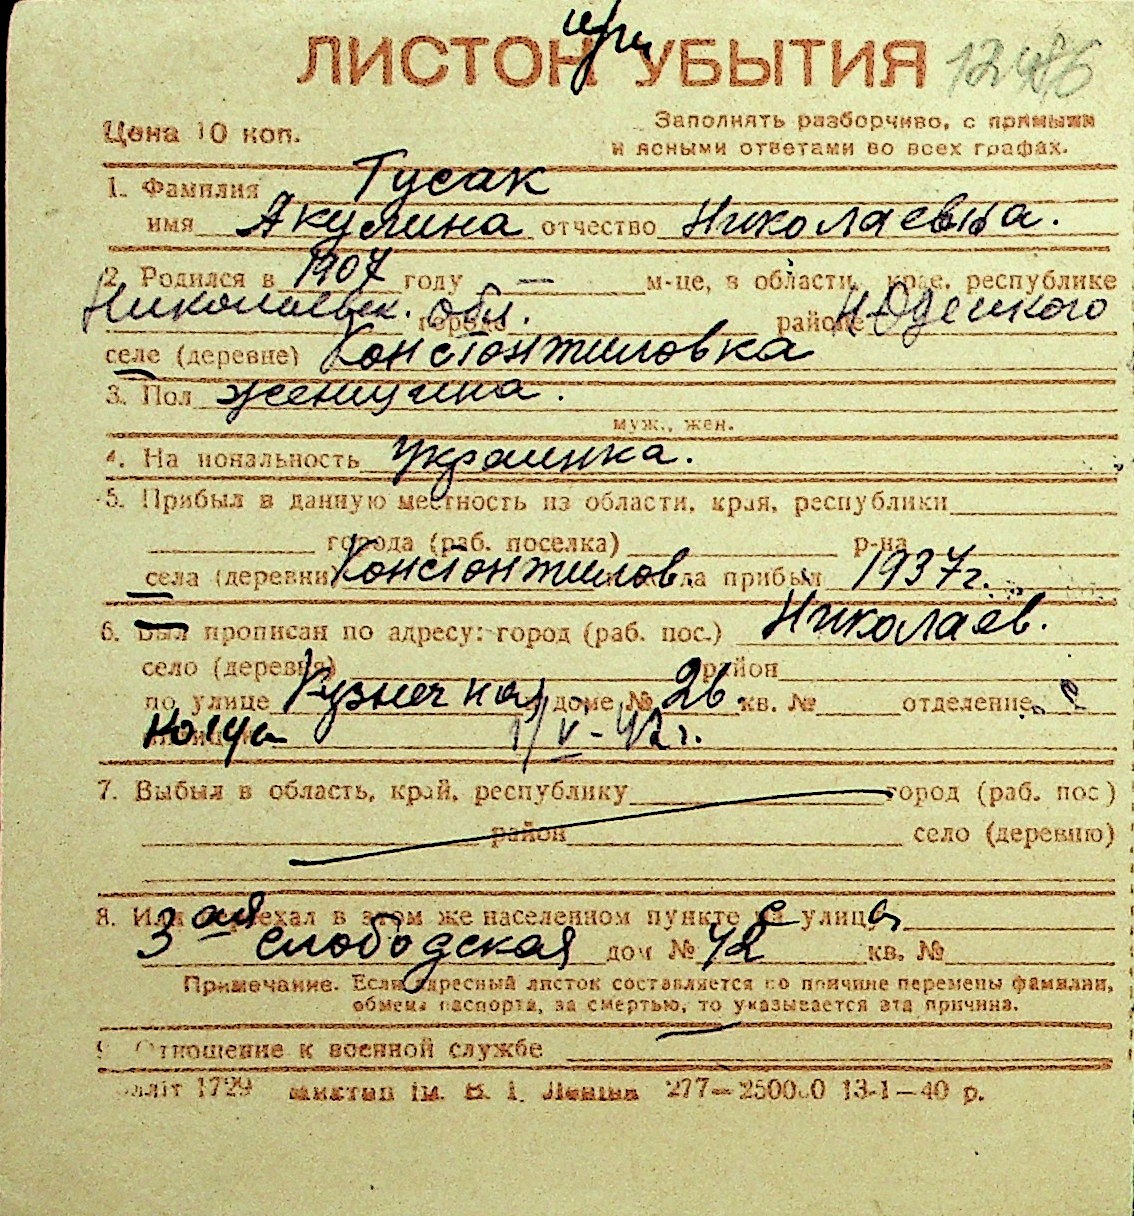 ЛИСТОК УБЫТИЯ
Цена 10 коп.
Заполнять разборчиво, с прямыми
и ясными ответами во всех графах.
1. Фамилия Гусак
имя Акулина отчество Николаевна.
2. Родился в 1907 году — м-це, в области, крае, республике
Николаевск. обл. города районе Н Одесского
селе (деревне) Константиновка
3. Пол женщина.
муж., жен.
4. Национальность Украинка.
5. Прибыл в данную местность из области, края, республики
города (раб. поселка) р-на
села (деревни) Константинов. прибыл 1937г.
6. Был прописан по адресу: город (раб. пос.) Николаев.
село (деревня) район
по улице Кузнечная доме № 26 кв. № отделение
V-42 г.
7. Выбыл в область, край, республику город (раб. пос)
район село (деревню)
8. Или переехал в этом же населенном пункте с улица
3 ая слободская дом № 42 кв. №
Примечание. Если адресный листок составляется по причине перемены фамилии,
обмена паспорта, за смертью, то указывается эта причина.
9. Отношение к военной службе
1729 ім. В. І. Леніна 277—250000 13-1—40 р.